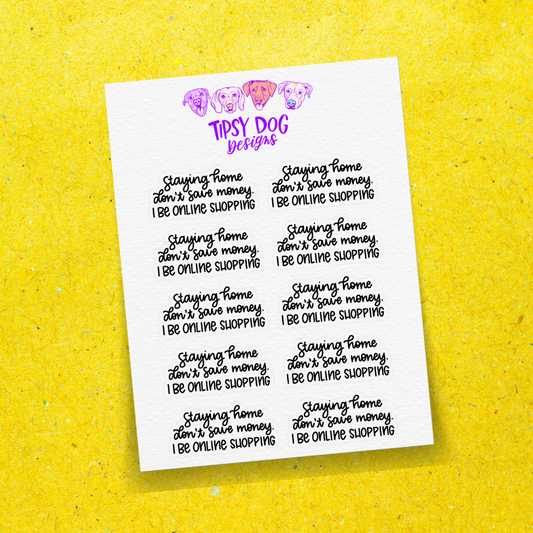 TIPSY DOG
Designs
Staying home
don't save money.
I BE ONLINE SHOPPING
Staying home
don't save money.
I BE ONLINE SHOPPING
Staying home
don't save money.
I BE ONLINE SHOPPING
Staying home
don't save money.
I BE ONLINE SHOPPING
Staying home
don't save money.
I BE ONLINE SHOPPING
Staying home
don't save money.
I BE ONLINE SHOPPING
Staying home
don't save money.
I BE ONLINE SHOPPING
Staying home
don't save money.
I BE ONLINE SHOPPING
Staying home
don't save money.
I BE ONLINE SHOPPING
Staying home
don't save money.
I BE ONLINE SHOPPING